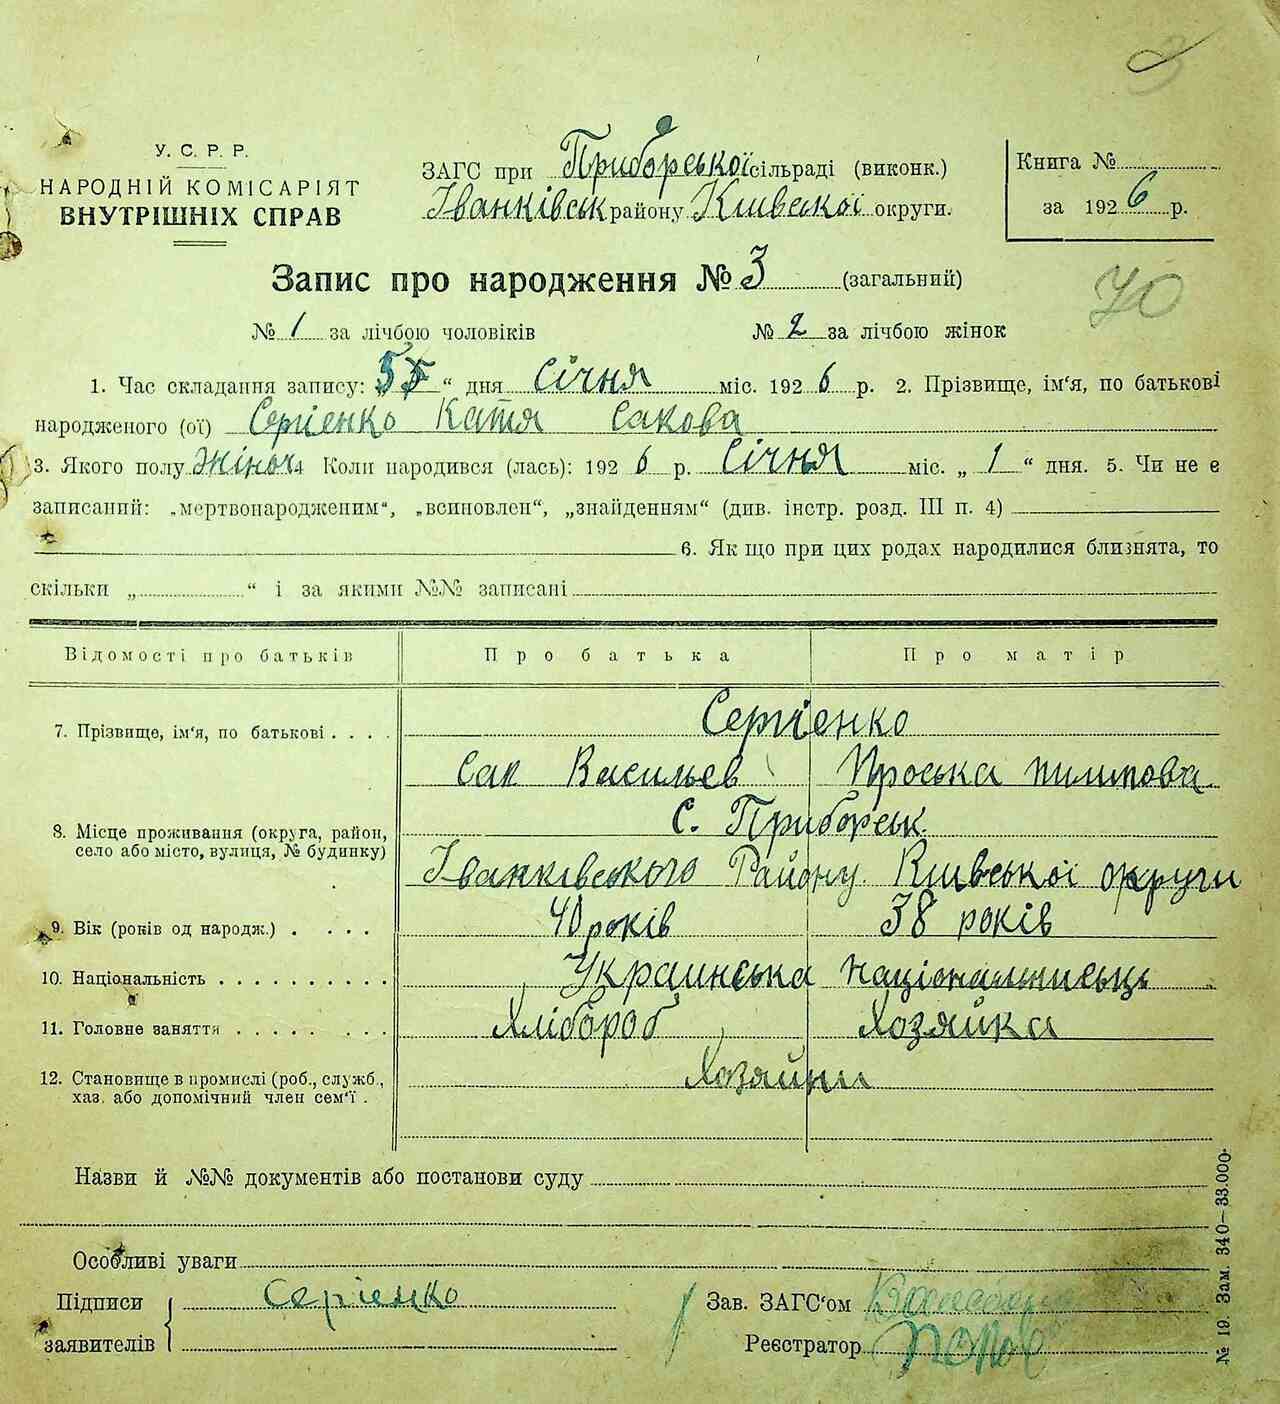 У. С. Р. Р.
НАРОДНІЙ КОМІСАРІЯТ
ВНУТРІШНІХ СПРАВ
ЗАГС при Приборської сільраді (виконк.)
Іванківськ району Київської округи.
Книга №
за 1926 р.
Запис про народження № 3 (загальний)
70
№ 1 за лічбою чоловіків № 2 за лічбою жінок
1. Час складання запису: 5 “ дня Січня міс. 1926 р. 2. Прізвище, ім‘я, по батькові
народженого (ої) Сергієнко Катя Сакова
3. Якого полу Жіноч 4 Коли народився (лась): 1926 р. Січня міс. „ 1 “ дня. 5. Чи не є
записаний: „мертвонародженим“, „всиновлен“, „знайденням“ (див. інстр. розд. III п. 4)
6. Як що при цих родах народилися близнята, то
скільки „ “ і за якими №№ записані
Відомості про батьків Про батька Про матір
7. Прізвище, ім‘я, по батькові . . . . Сергієнко
Сак Васильєв Проська Пилипова
8. Місце проживання (округа, район, С. Приборськ.
село або місто, вулиця, № будинку) Іванківського Району. Київської округи
9. Вік (років од народж.) . . . . 40 років 38 років
10. Національність . . . . . . . . . . Украинська національнисць
11. Головне заняття . . . . . . . . Хлібороб Хозяйка
12. Становище в промислі (роб., служб., Хозяйни
хаз. або допомічний член сем‘ї .
Назви й №№ документів або постанови суду
Особливі уваги
Підписи Сергієнко Зав. ЗАГС‘ом
заявителів Реєстратор
№ 19. Зам. 340—33.000.